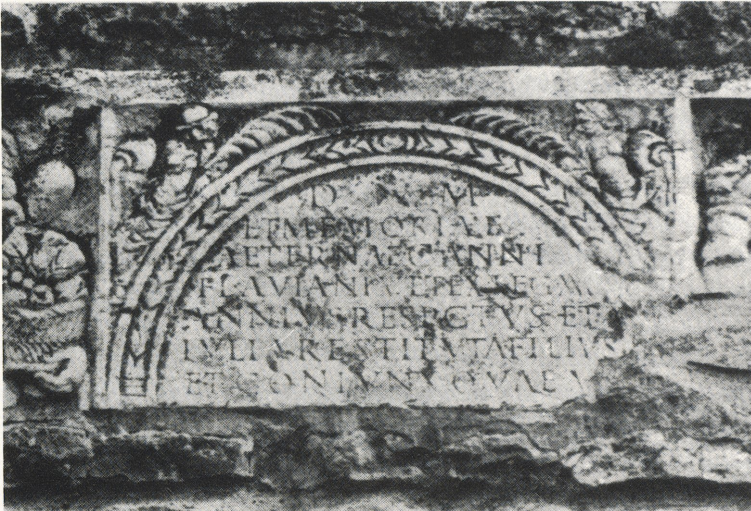 D M
ET MEMORIAE
AETERNAE C ANNI
FLAVIANI LEG
ANNIVS RESPECTVS ET
IVLIA RESTITVTA FILIVS
ET CONIVNX QVAE V